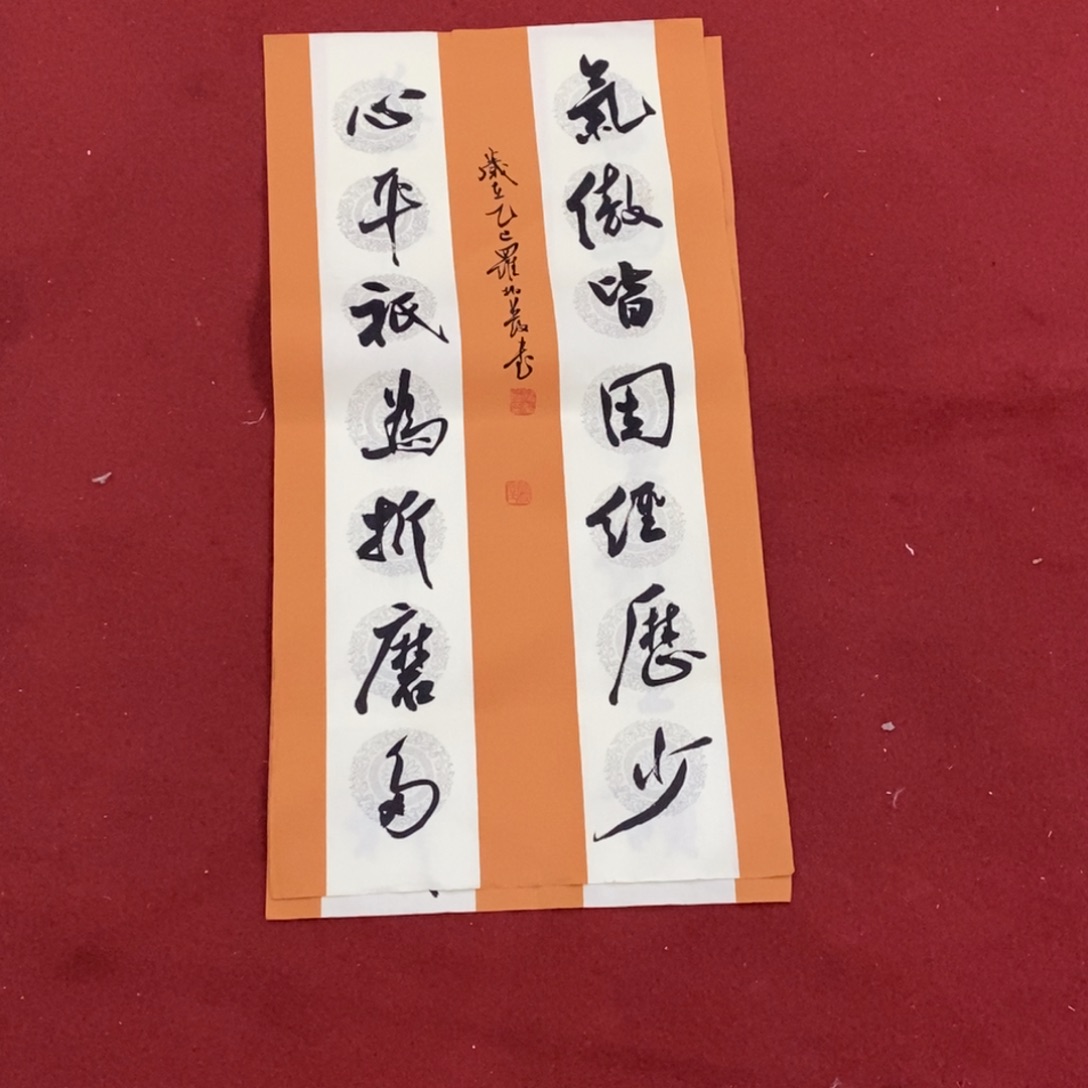 氣傲皆因經歷少
歲在乙巳羅書
心平祇為折磨多